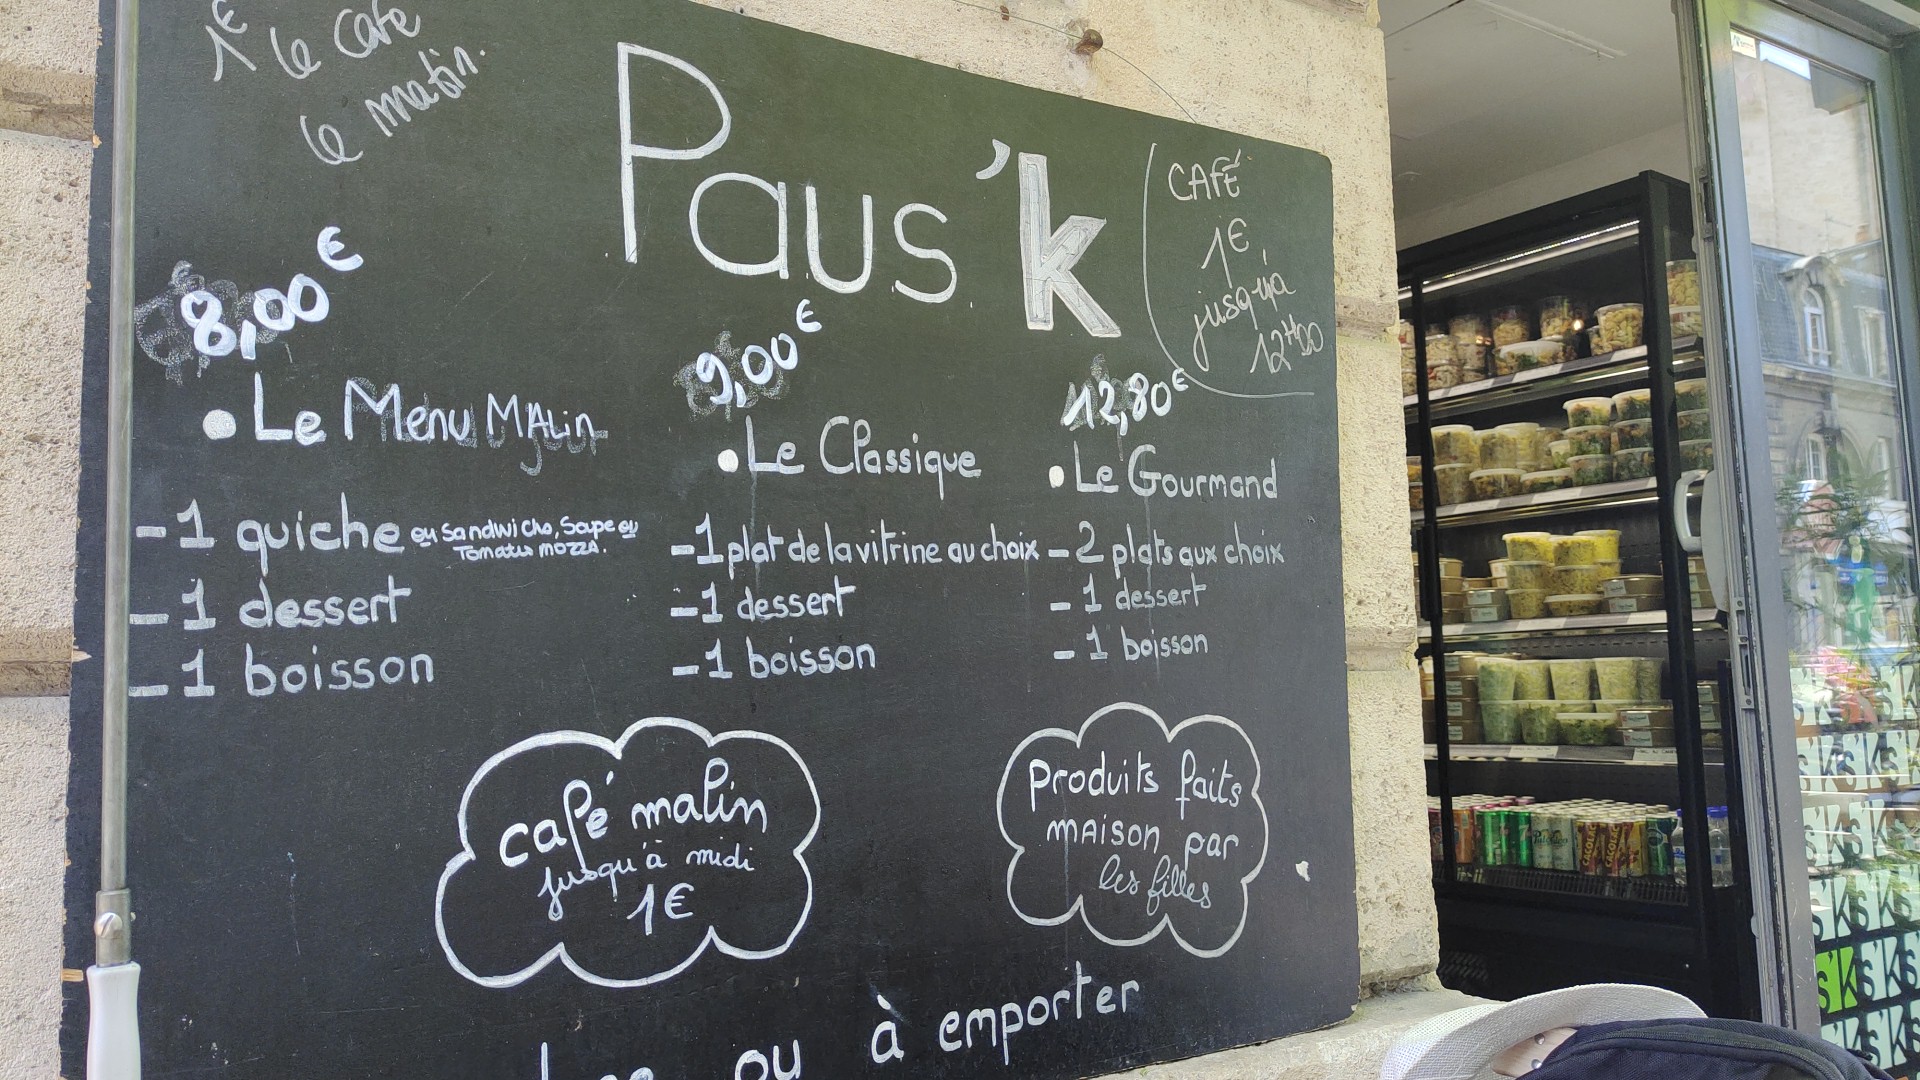 1€ le café
le matin.
Paus'k
CAFÉ
1€
jusqu'à
12H00
8,00€
• Le Menu MALin
- 1 quiche ou Sandwichs, Soupe ou
Tomates mozza.
- 1 dessert
- 1 boisson
9,00€
• Le Classique
- 1 plat de la vitrine au choix
- 1 dessert
- 1 boisson
12,80€
• Le Gourmand
- 2 plats aux choix
- 1 dessert
- 1 boisson
café malin
jusqu'à midi
1€
Produits faits
maison par
les filles
ou à emporter
CACOLAC
CACOLAC